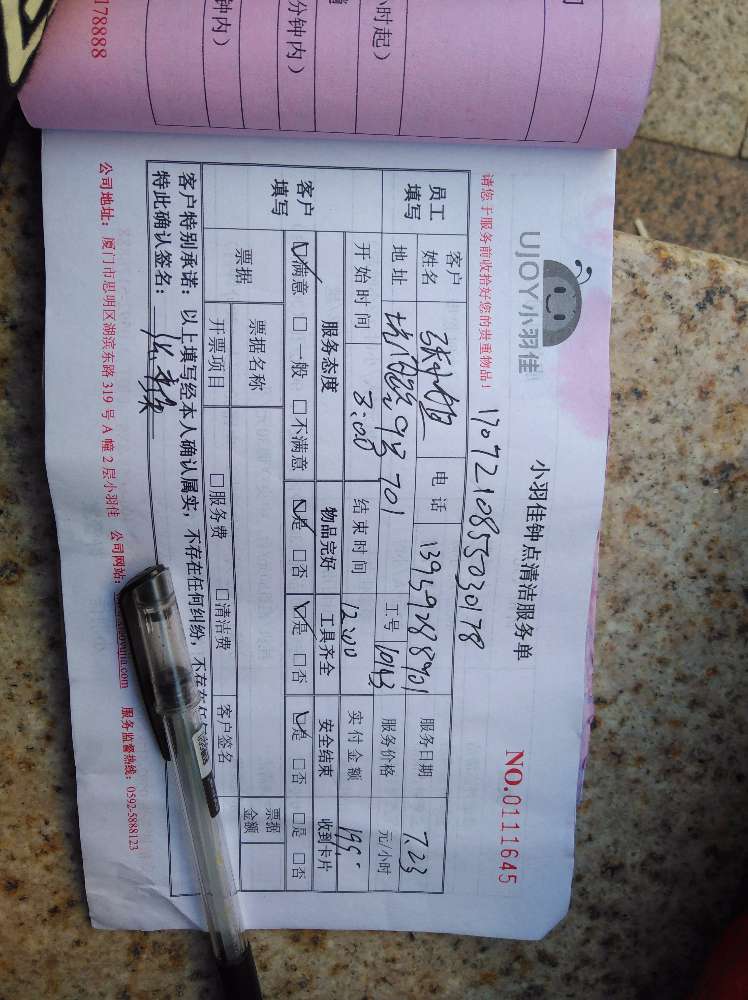 178888
钟内）
分钟内）
小时起）
UJOY小羽佳
小羽佳钟点清洁服务单
NO.0111645
请您于服务前收拾好您的贵重物品！
1707210855030178
员工填写
客户姓名
电话
13959288901
服务日期
7.23
地址
98 701
工号
服务价格
元/小时
开始时间
8:00
结束时间
12:00
实付金额
客户填写
服务态度 物品完好 工具齐全 安全结束 收到卡片
☑满意 □一般 □不满意 ☑是 □否 ☑是 □否 ☑是 □否 □是 □否
票据
票据名称
票据金额
开票项目
□服务费 □清洁费
客户签名
客户特别承诺：以上填写经本人确认属实，不存在任何纠纷，不存在
特此确认签名：
公司地址：厦门市思明区湖滨东路319号A幢2层小羽佳 公司网站： .com 服务监督热线：0592-5888123